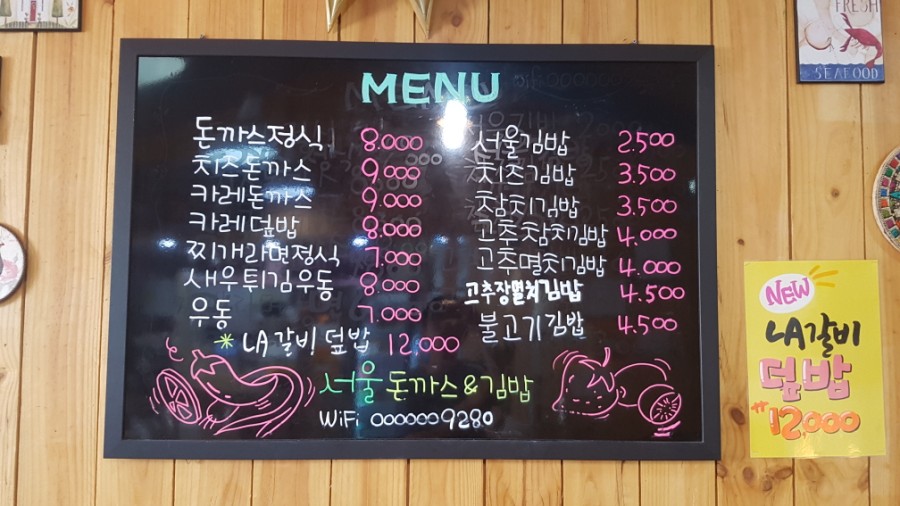 MENU
돈까스정식 8.000
치즈돈까스 9.000
카레돈까스 9.000
카레덮밥 8.000
찌개라면정식 7.000
새우튀김우동 8.000
우동 7.000
* LA갈비덮밥 12,000
서울김밥 2.500
치즈김밥 3.500
참치김밥 3.500
고추참치김밥 4.000
고추멸치김밥 4.000
고추장멸치김밥 4.500
불고기김밥 4.500
서울 돈까스&김밥
WiFi 0000009280
FRESH
SEAFOOD
NEW
LA갈비
덮밥
12,000